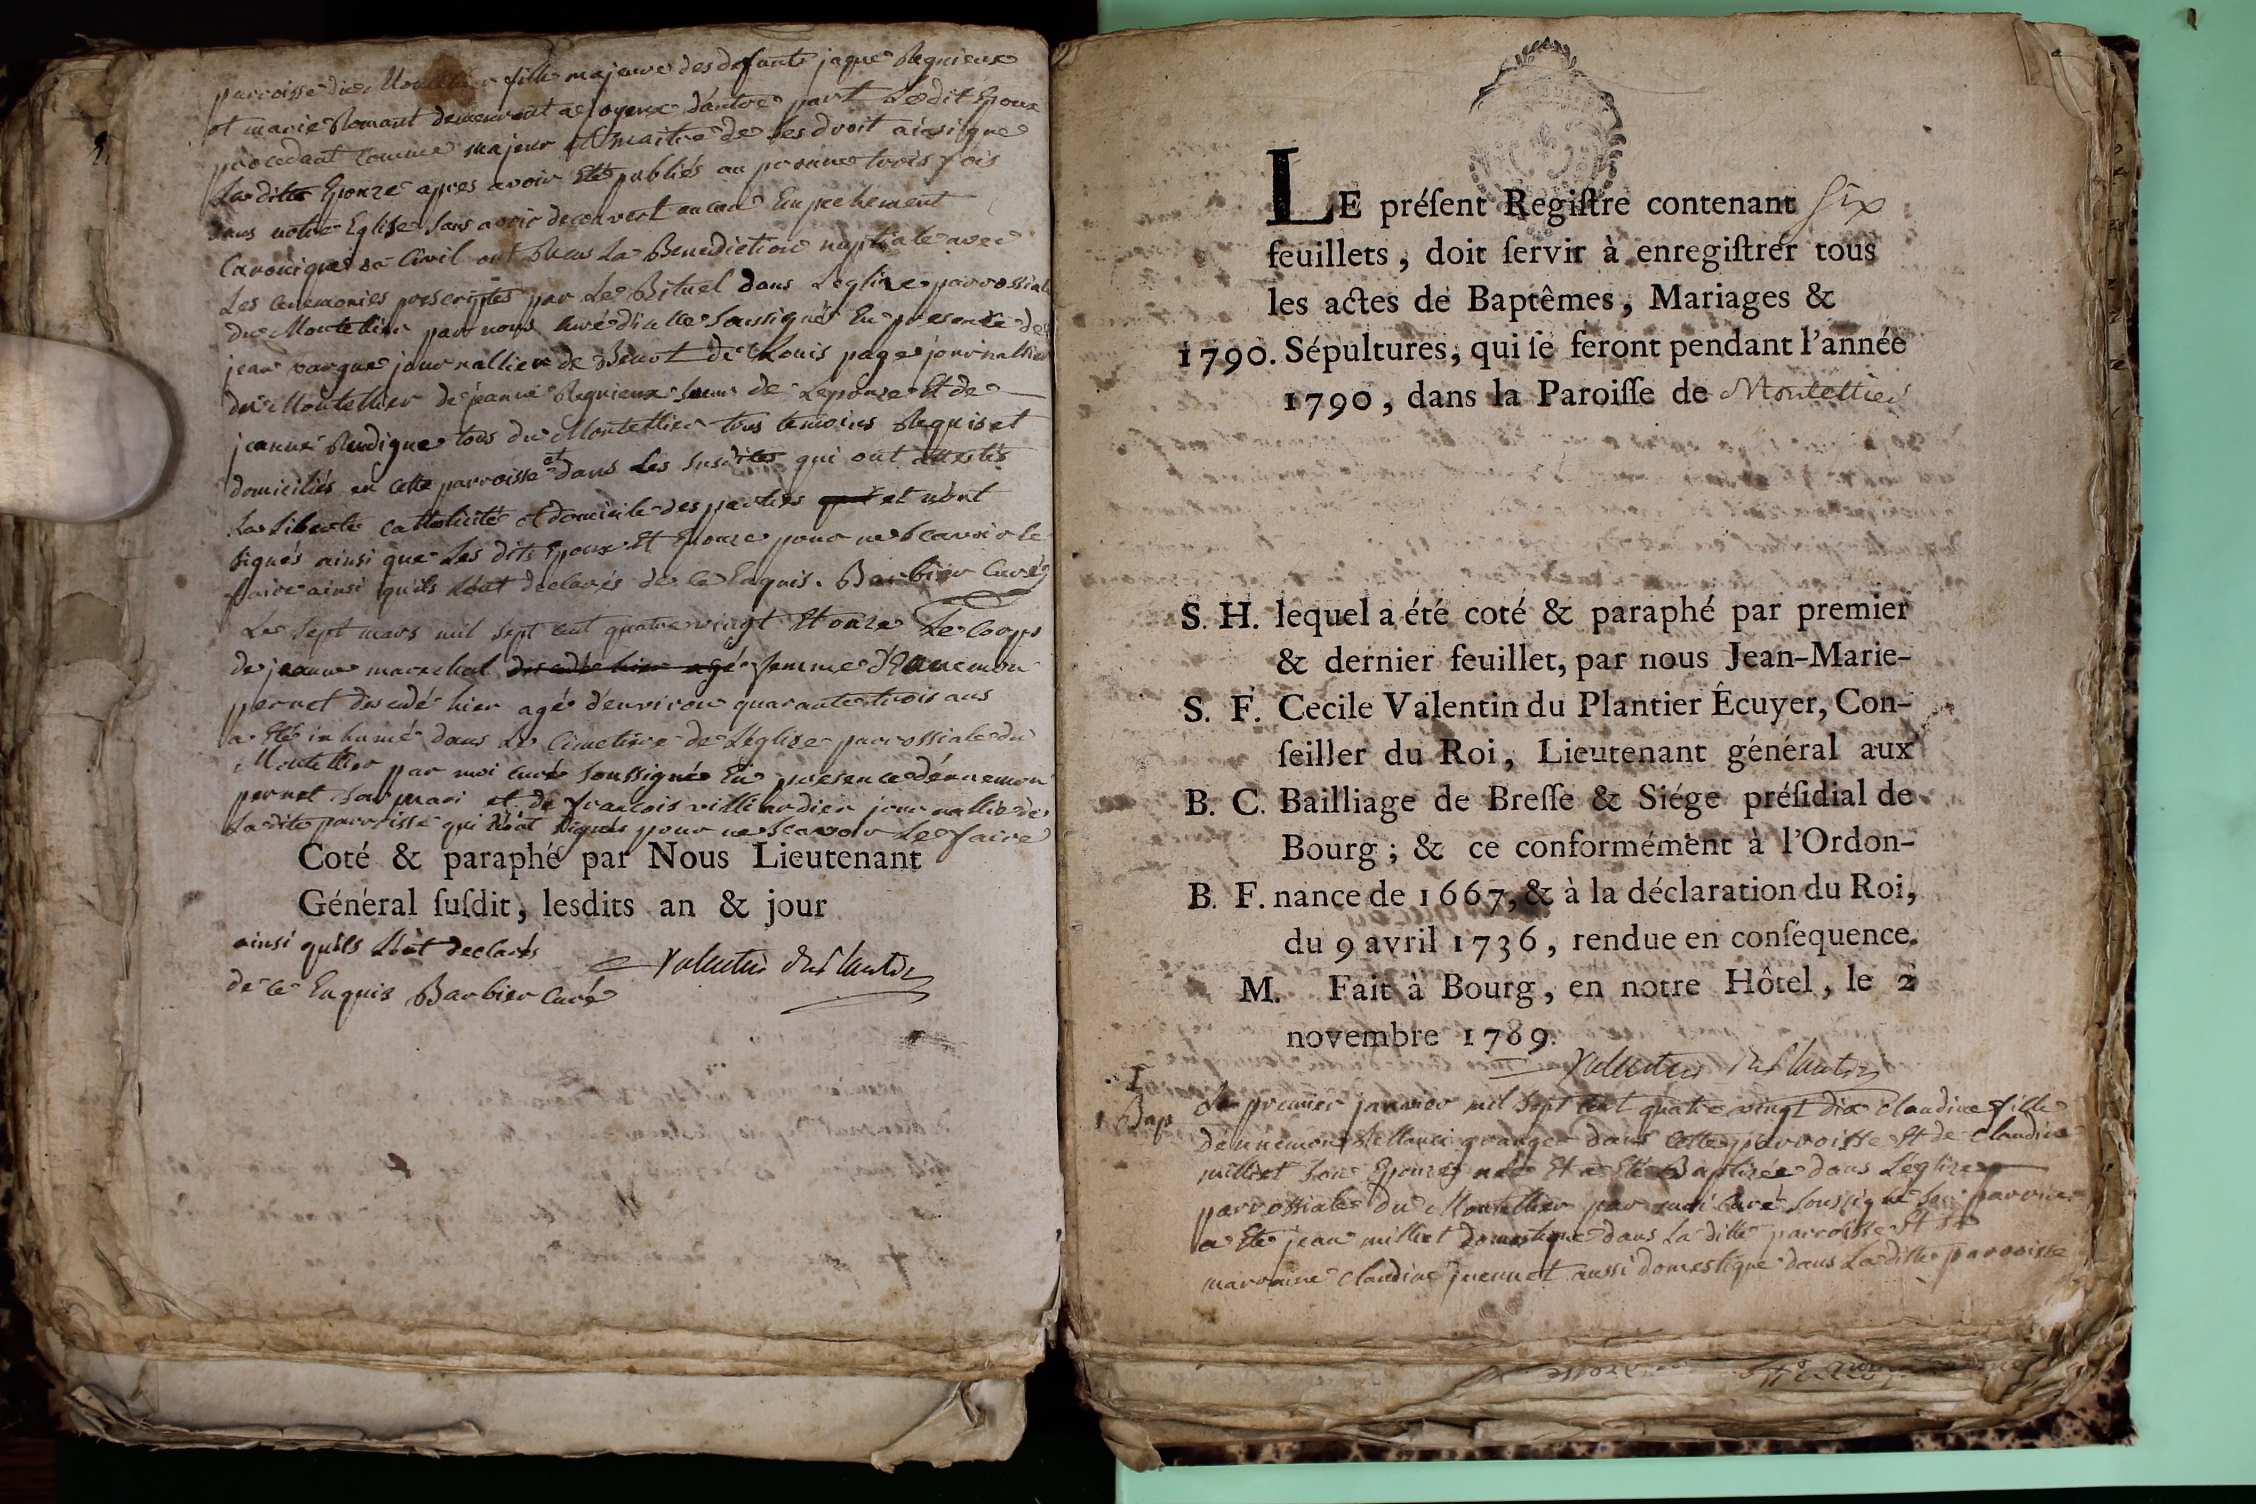 parroisse du Montellier fille majeure des defunts jaque Regnieux
et marie Romant demeurant a joyeux d'autre part Ledit Epoux
procedant comme majeur et maitre de ses droit ainsi que
La ditte Epouze apres avoir Eté publiés au pronne trois fois
dans notre Eglise sans avoir decouvert aucun Empechement
Canonique ou Civil ont Recus La Benediction nuptiale avec
Les ceremonies prescriptes par Le Rituel dans L'eglize parrossiale
du Montellier par nous curé d'icelle soussigné En presence de
jean vargue journallier de Benot de Louis page journallier
du Montellier de jeanne Regnieux soeur de L'epouze Et de
jeanne Rudigue tous du Montellier tous temoins Requis et
domiciliés en cette parroisse et dans Les susdites qui ont attestés
La Liberté catholicité et domicile des parties qui et n'ont
signés ainsi que Les dits Epoux Et Epouze pour ne Scavoir Le
faire ainsi qu'ils L'ont declarés de ce Enquis. Barbier Curé
Le sept mars mil sept cent quatre vingt Et onze Le Corps
de jeanne marechal decedée hier agé femme d'Ennemon
pernet decedé hier agé d'environ quarante trois ans
a Eté inhumé dans Le Cimetiere de L'eglize parrossiale du
Montellier par moi curé soussigné En presence d'ennemon
pernet Son mari et de francois villiardier journallier de
La dite parroisse qui n'ont signés pour ne Scavoir Le faire
Coté & paraphé par Nous Lieutenant
Général ſuſdit, lesdits an & jour
ainsi qu'ils L'ont declarés
de ce Enquis Barbier Curé
Valentin duPlantier
LE préſent Regiſtre contenant Six
feuillets, doit ſervir à enregiſtrer tous
les actes de Baptêmes, Mariages &
1790. Sépultures, qui ſe feront pendant l'année
1790, dans la Paroiſſe de Montellier
S. H. lequel a été coté & paraphé par premier
& dernier feuillet, par nous Jean-Marie-
S. F. Cecile Valentin du Plantier Écuyer, Con-
ſeiller du Roi, Lieutenant général aux
B. C. Bailliage de Breſſe & Siége préſidial de
Bourg; & ce conformément à l'Ordon-
B. F. nance de 1667, & à la déclaration du Roi,
du 9 avril 1736, rendue en conſéquence.
M. Fait à Bourg, en notre Hôtel, le 2
novembre 1789.
Valentin duPlantier
1
1 Bap
Le premier janvier mil sept cent quatre vingt dix Claudine fille
d'ennemon granger dans cette parroisse Et de Claudine
milliet Son Epouze née Et a Eté Baptizée dans L'eglize
parrossiale du Montellier par moi curé soussigné Son parrin
a Eté jean milliet domestique dans La ditte parroisse Et Sa
marraine Claudine juennet aussi domestique dans La ditte parroisse